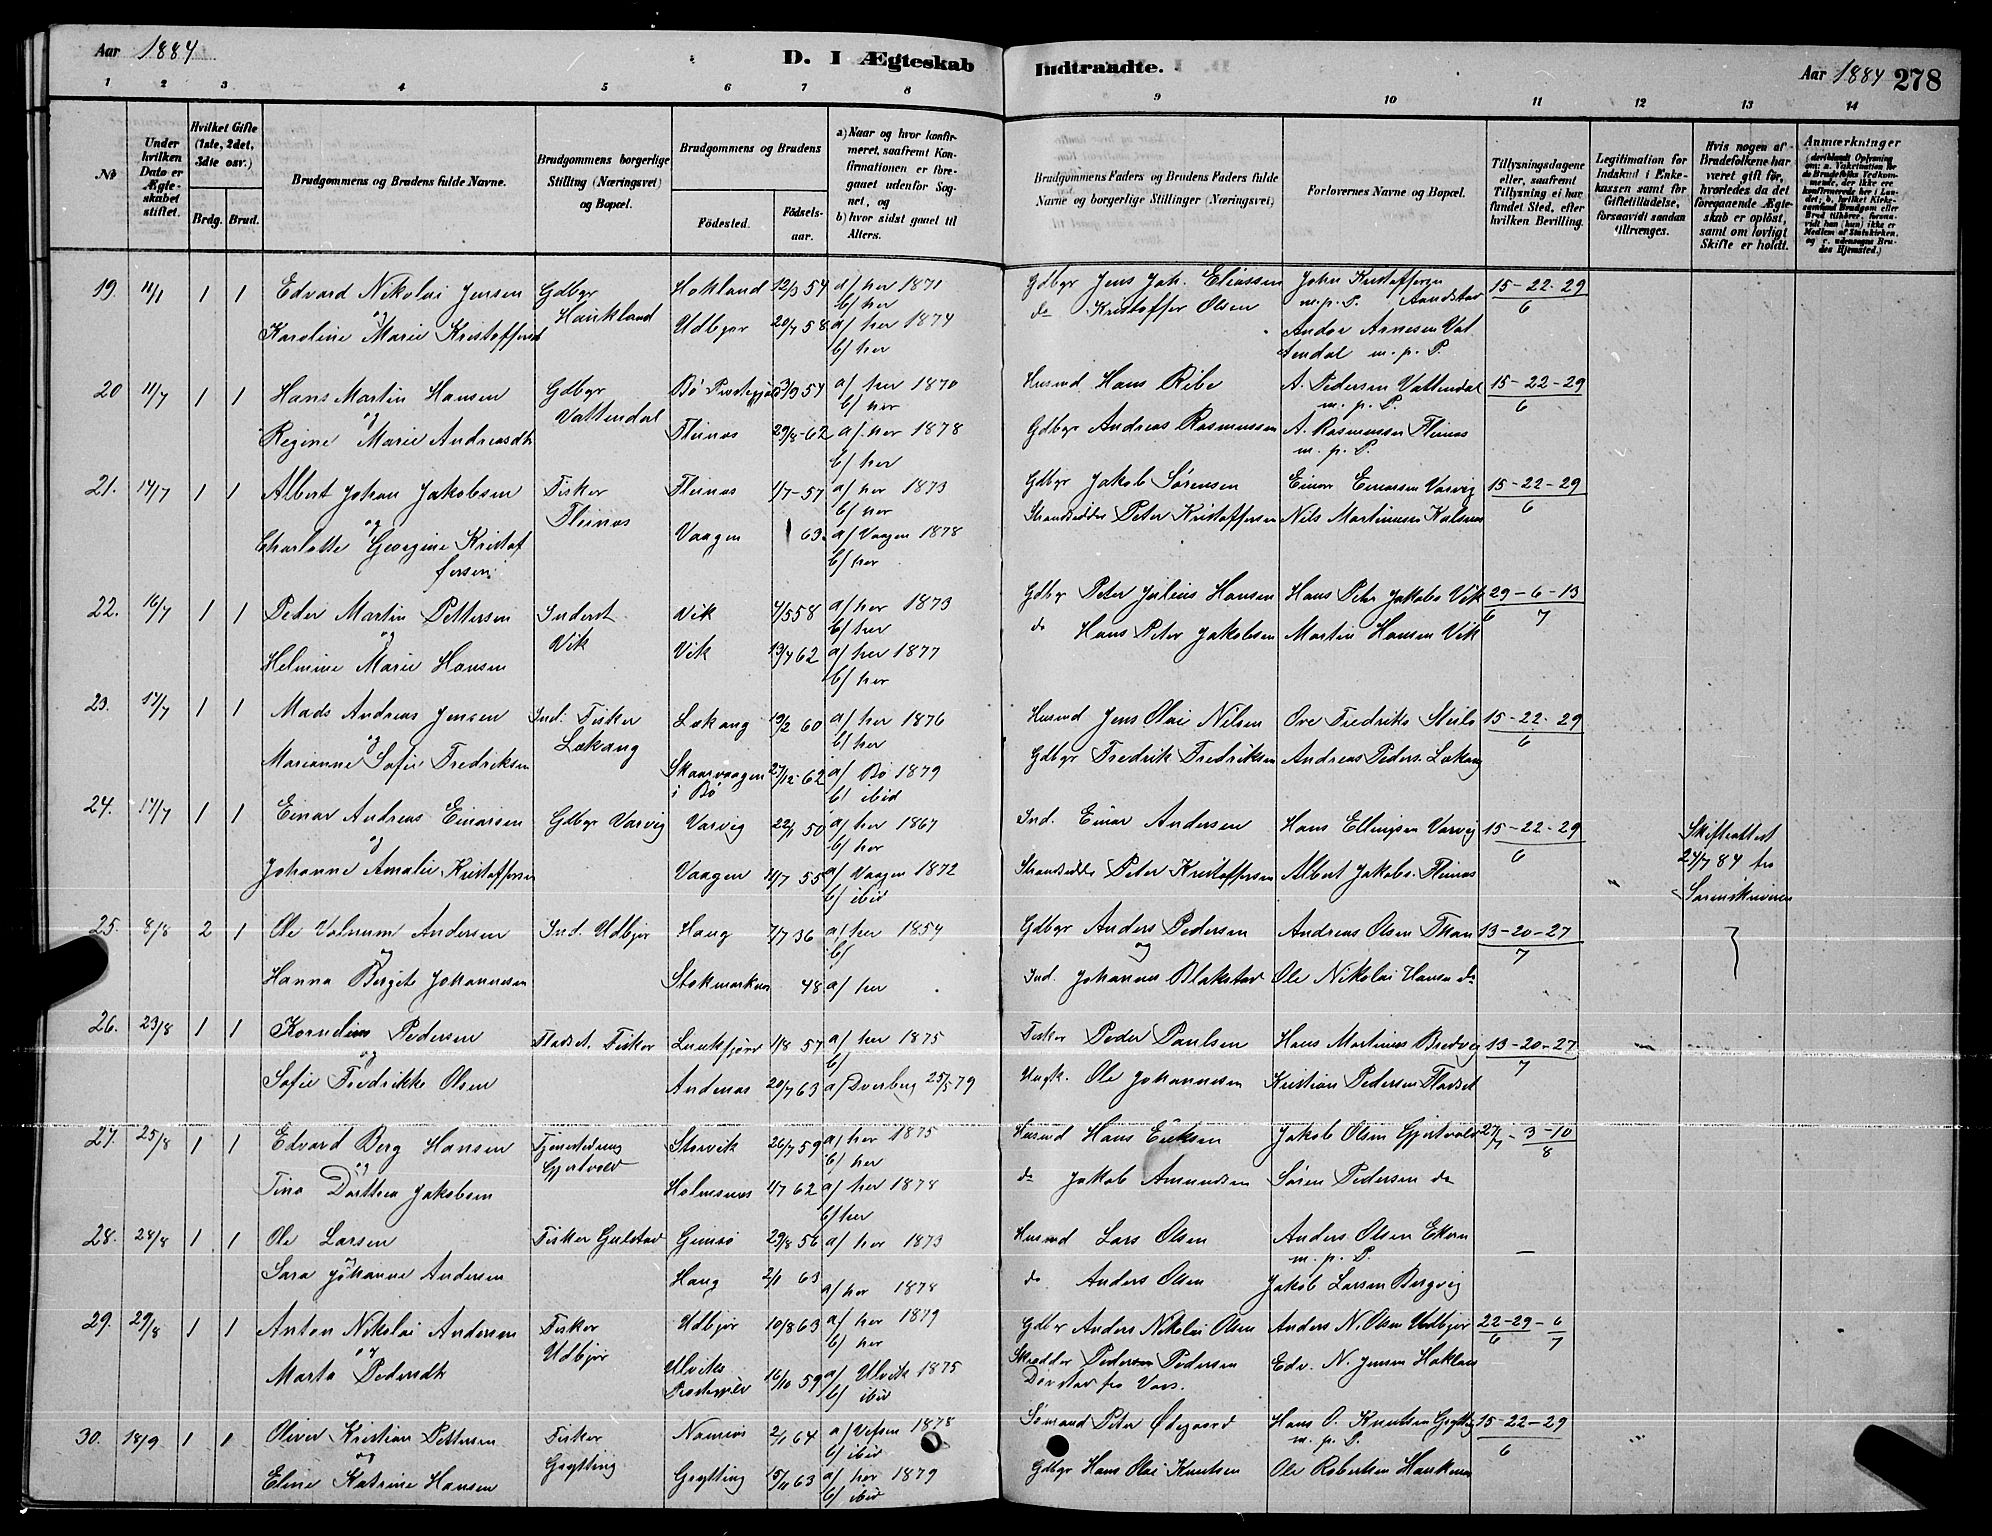 Aar 1884
D. I Ægteskab Indtraadte.
Aar 1884 278
1 2 3 4 5 6 7 8 9 10 11 12 13 14
No
Under hvilken Dato er Ægteskabet stiftet.
Hvilket Gifte (1ste, 2det, 3die osv.)
Brdg. Brud.
Brudgommens og Brudens fulde Navne.
Brudgommens borgerlige Stilling (Næringsvei) og Bopæl.
Brudgommens og Brudens
Fødested.
Fødselsaar.
a) Naar og hvor konfirmeret, saafremt Konfirmationen er foregaaet udenfor Sognet, og
b) hvor sidst gaaet til Alters.
Brudgommens Faders og Brudens Faders fulde Navne og borgerlige Stillinger (Næringsvei)
Forlovernes Navne og Bopæl.
Tillysningsdagene eller, saafremt Tillysning ei har fundet Sted, efter hvilken Bevilling.
Legitimation for Indskud i Enkekassen samt for Giftetilladelse, forsaavidt saadan tiltrænges.
Hvis nogen af Brudefolkene har været gift før, hvorledes da det foregaaende Ægteskab er opløst, samt om lovligt Skifte er holdt.
Anmærkninger
19. 11/7 1 1 Edvard Nikolai Jensen Gdbgr Hokland 12/3 54 a/ her 1871 Gdbgr Jens Joh. Eliassen Johan Kristoffersen 15-22-29
og Haukland b/ her m.p.P. Aandstad 6
Karoline Marie Kristoffersd Udbjor 20/7 58 a/ her 1874 do Kristoffer Olsen Andor Arnesen Vat
b/ her tendal m.p.P.
20 11/7 1 1 Hans Martin Hansen Gdbgr Bø Prestegjæld 3/3 54 a/ her 1870 Husmd Hans Ribe A. Pedersen Vattendal 15-22-29
og Vattendal b/ her m.p.P. 6
Regine Marie Andreasdt Fleines 29/8-62 a/ her 1878 Gdbgr Andreas Rasmussen A. Rasmussen Fleines
b/ her m.p.P.
21. 14/7 1 1 Albert Johan Jakobsen Fisker Fleines 1/7-57 a/ her 1873 Gdbgr Jakob Sørensen Einar Einarsen Varvig 15-22-29
og Fleines b/ her 6
Charlotte Georgine Kristof Vaagen 63 a/ Vaagen 1878 Strandsidder Peter Kristoffersen Nils Martinussen
fersen b/ her
22. 16/7 1 1 Peder Martin Pettersen Inderst Vik 4/5 58 a/ her 1873 Gdbgr Peter Julius Hansen Hans Peter Jakobs Vik 29-6-13
og Vik b/ her 6 7
Helmine Marie Hansen Vik 13/4 62 a/ her 1877 do Hans Peter Jakobsen Martin Hansen Vik
b/ her
23. 17/7 1 1 Mads Andreas Jensen Ind. Fisker Lekang 19/2 60 a/ her 1876 Husmd Jens Olai Nilsen Ove Fredriks Steilo 15-22-29
og Lekang b/ her 6
Marianne Sofie Fredriksen Skaarvaagen 27/12-62 a/ Bø 1879 Gdbgr Fredrik Fredriksen Andreas Peders. Lekang
i Bø b/ ibid
24. 17/7 1 1 Einar Andreas Einarsen Gdbgr Varvig Varvig 22/1 50 a/ her 1867 Ind. Einar Andersen Hans Ellingsen Varvig 15-22-29 Skifteattest
og b/ her 6 24/7 84 fra
Johanne Amalie Kristoffersen Vaagen 11/7 55 a/ Vaagen 1872 Strandsidder Peter Kristoffersen Albert Jakobs. Fleines Sorenskriveren
b/ ibid
25. 8/8 2 1 Ole Andersen Ind. Udbjor Haug 7/7 36 a/ her 1854 Gdbgr Anders Pedersen Andreas Olsen 13-20-27
og b/ og 7
Hanna Bergite Johannesen Stokmarknes 48 a/ her Ind. Johannes Blokstad Ole Nikolai Hansen do
26. 23/8 1 1 Kornelius Pedersen Fladset. Fisker 1/8 57 a/ her 1875 Fisker Peder Paulsen Hans Martinus Bredvig 13-20-27
og b/ 7
Sofie Fredrikke Olsen Andenes 20/7 63 a/ Dverberg 25/5 79 Ole Johannesen Kristian Pedersen Fladset
27. 25/8 1 1 Edvard Berg Hansen Tjenestedreng Storvik 26/7 59 a/ her 1875 Husmd Hans Eriksen Jakob Olsen Gjertvold 27/7-3-10
og Gjertvold b/ her 8
Tina Dorthea Jakobsen Holmsnes 4/7 62 a/ her 1878 do Jakob Amundsen Søren Pedersen do
b/ her
28. 28/8 1 1 Ole Larsen Fisker Gulstad Gimsø 29/8 56 a/ her 1873 Husmd Lars Olsen Anders Olsen Ekren —
og m.p.P.
Sara Johanne Andersen Haug 2/1 63 a/ her 1878 do Anders Olsen Jakob Larsen Bergvig
29. 29/8 1 1 Anton Nikolai Andersen Fisker Udbjor 10/8 63 a/ her 1879 Gdbgr Anders Nikolai Olsen Anders N. Olsen Udbjor 22-29-6
og Udbjor b/ her 6 7
Marta Pedersdt Ulvik 16/10 59 a/ Ulvik 1875 Skrædder Peder Pedersen Edv. N. Jensen Hokland
Prestegjæld b/ ibid fra Vos.
30. 18/9 1 1 Oliver Kristian Pettersen Fisker Namsos 2/1 64 a/ Vefsen 1878 Sømand Peter Ødegaard Hans O. Knutsen Grytting 15-22-29
og Grytting b/ ibid m.p.P. 6
Eline Katrine Hansen Grytting 15/11 63 a/ her 1879 Gdbgr Hans Olai Knutsen Ole Robertsen Haukenes
b/ ibid